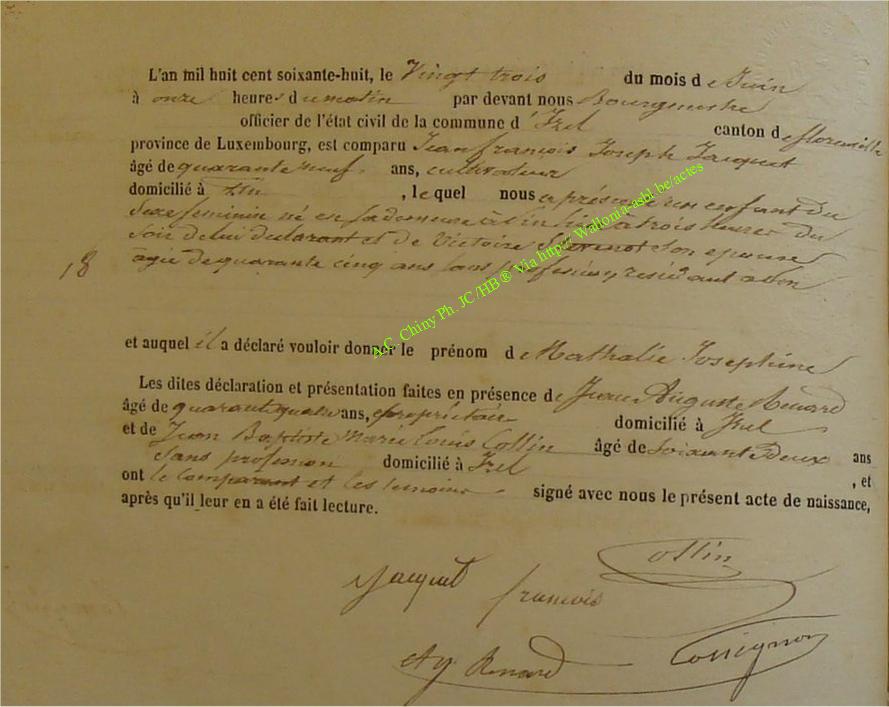 L'an mil huit cent soixante-huit, le Vingt trois du mois d e Juin
à onze heures d u matin par devant nous Bourgmestre
officier de l'état civil de la commune d' Izel canton d e florenville
province de Luxembourg, est comparu Jean françois Joseph Jacquet
âgé de quarante neuf ans, cultivateur
domicilié à Izel , le quel nous a présenté un enfant du
Sexe feminin né en sa demeure à trois heures du
Soir de lui declarant et de Victoire son epouse
agée de quarante cinq ans tous
18
et auquel il a déclaré vouloir donner le prénom d e Nathalie Josephine
Les dites déclaration et présentation faites en présence d e Jean Auguste Renard
âgé de quarante quatre ans, propriétaire domicilié à Izel
et de Jean Baptiste Marie Louis Collin âgé de Soixante Deux ans
Sans profession domicilié à Izel , et
ont le comparant et les temoins signé avec nous le présent acte de naissance,
après qu'il leur en a été fait lecture.
Collin
Jacquet françois
Ag. Renard Rossignon
A.C. Chiny Ph. JC /HB® Via http:// Wallonia-asbl be/actes